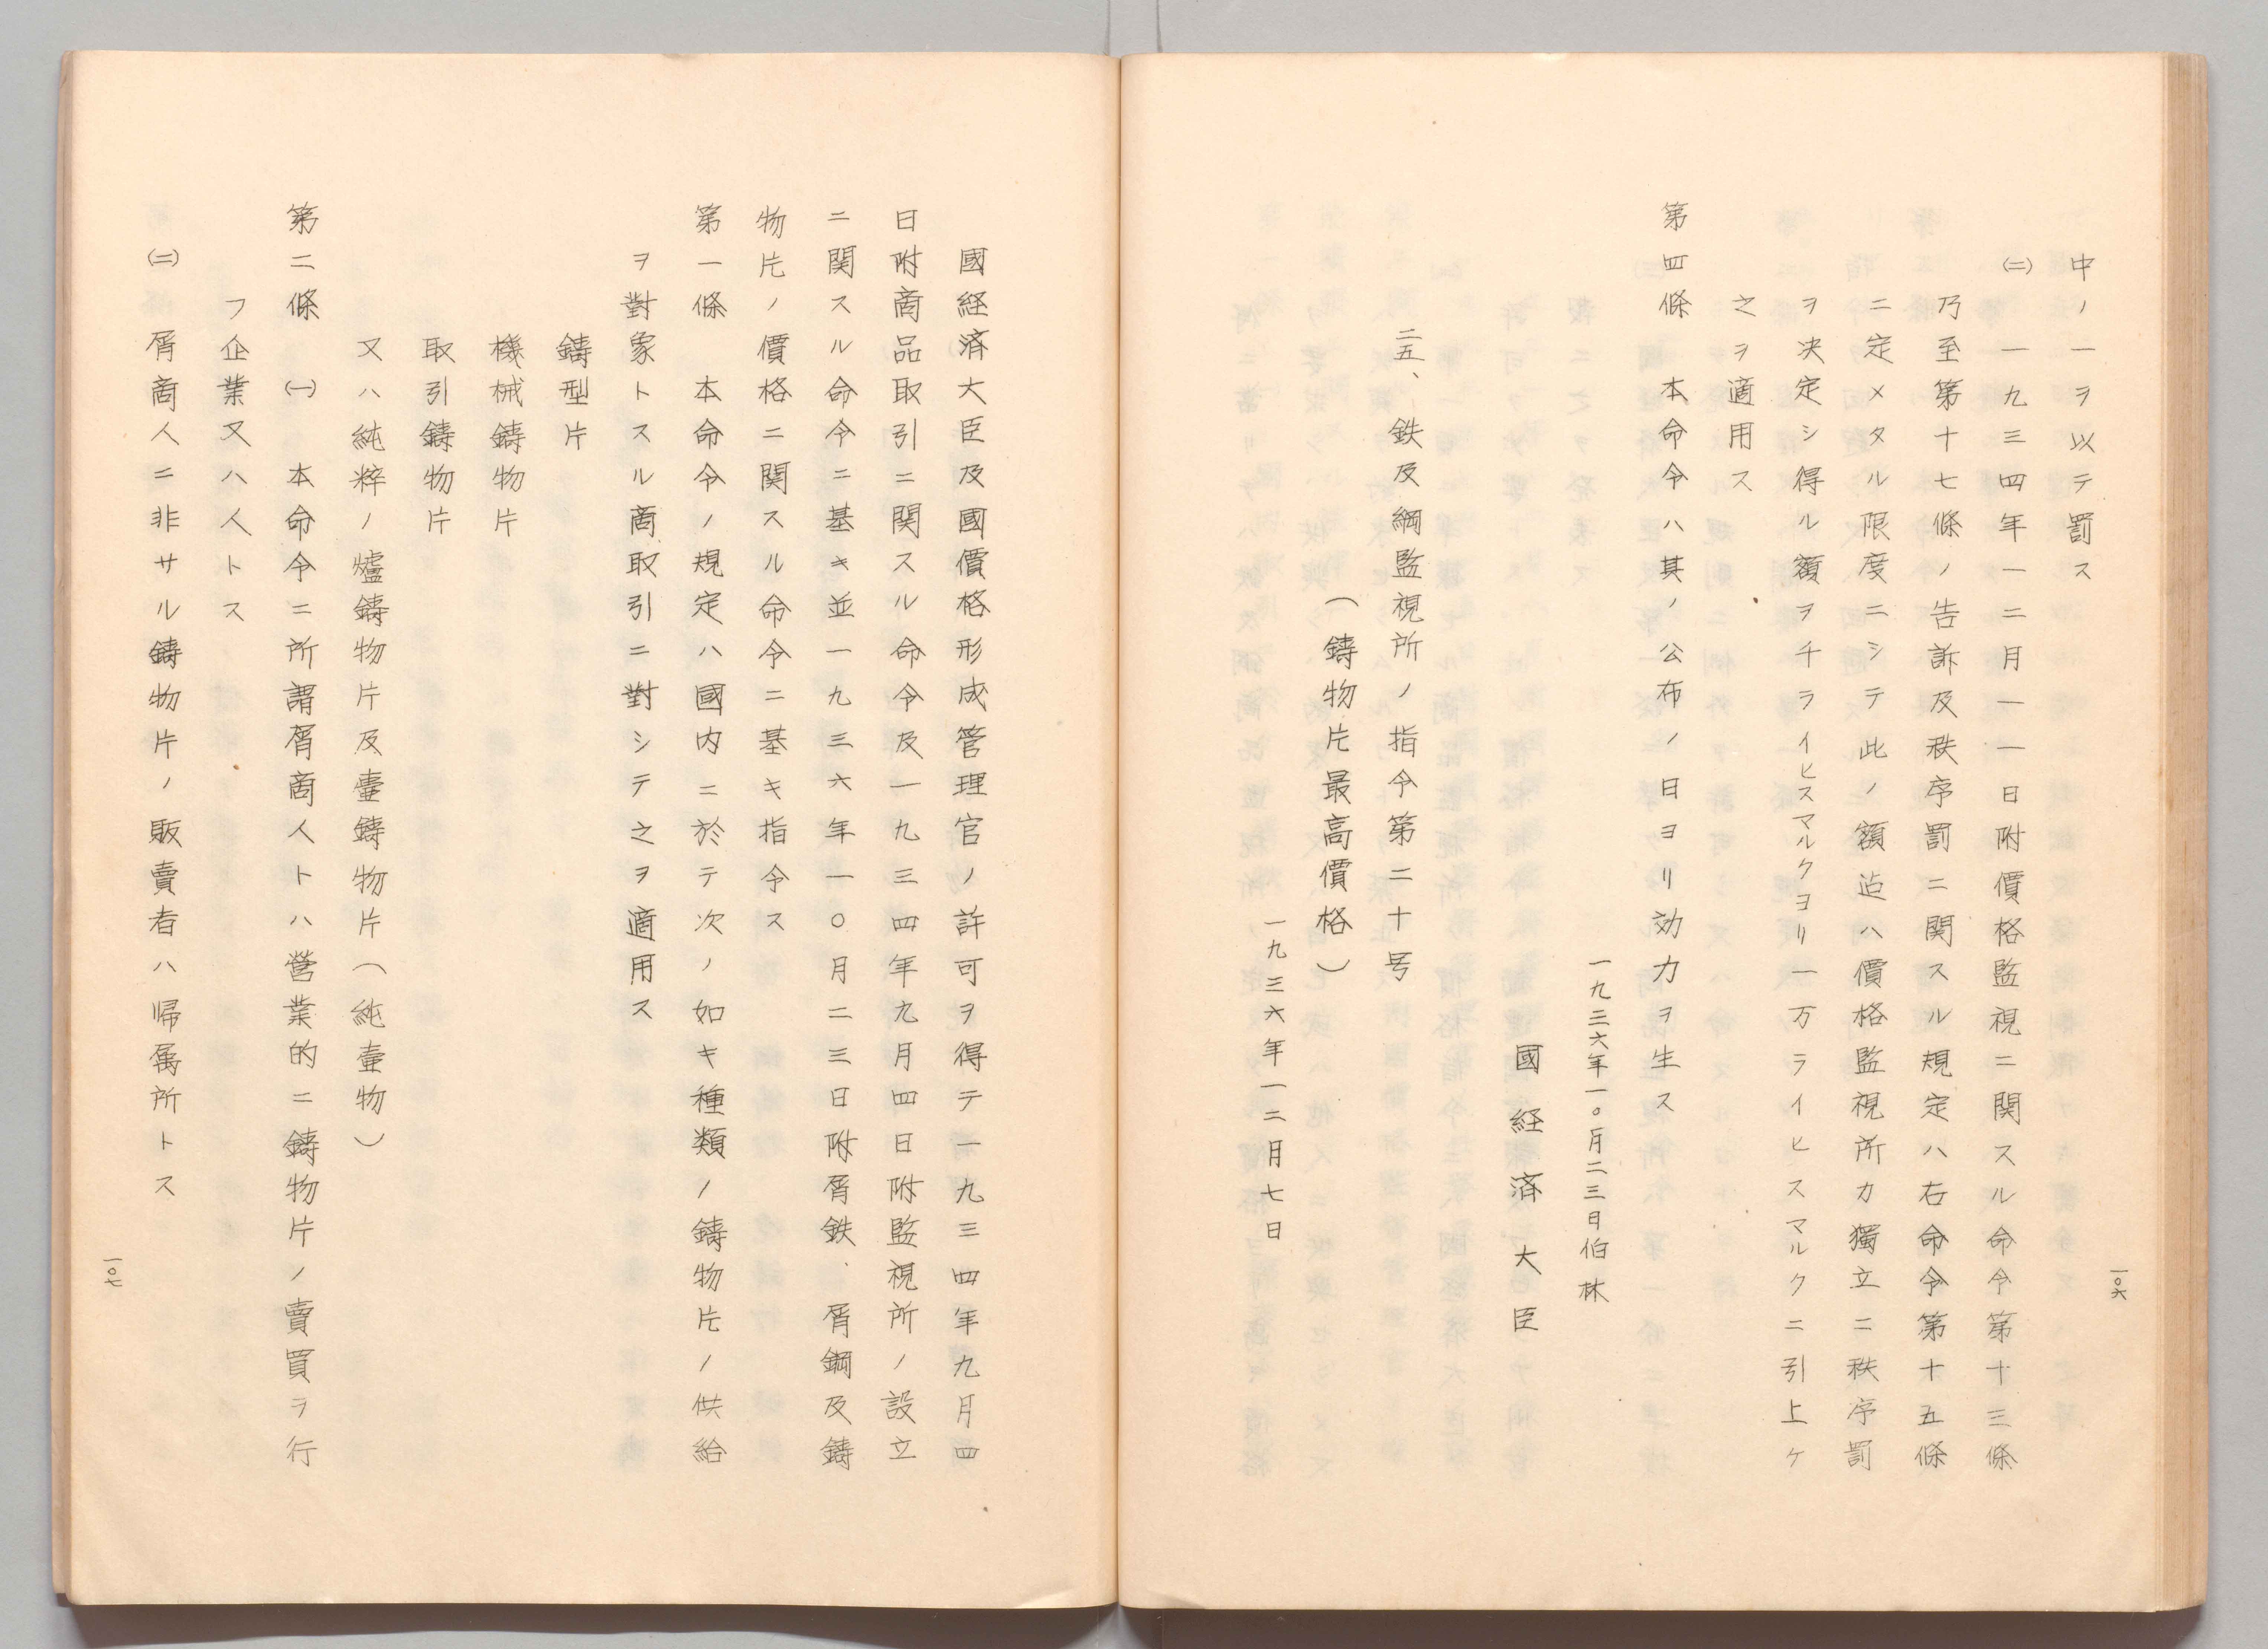 中ノ一ヲ以テ罰ス
㈡　一九三四年一二月一一日附價格監視ニ関スル命令第十三條
乃至第十七條ノ告訴及秩序罰ニ関スル規定ハ右命令第十五條
ニ定メタル限度ニシテ此ノ額迠ハ價格監視所カ獨立ニ秩序罰
ヲ决定シ得ル額ヲ千ライヒスマルクヨリ一万ライヒスマルクニ引上ケ
之ヲ適用ス
第四條　本命令ハ其ノ公布ノ日ヨリ効力ヲ生ス
一九三六年一〇月二三日伯林
國経済大臣
二五、鉄及綱監視所ノ指令第二十号
（鋳物片最高價格）
一九三六年一二月七日
一〇六
國経済大臣及國價格形成管理官ノ許可ヲ得テ一九三四年九月四
日附商品取引ニ関スル命令及一九三四年九月四日附監視所ノ設立
ニ関スル命令ニ基キ並一九三六年一〇月二三日附屑鉄、屑鋼及鑄
物片ノ價格ニ関スル命令ニ基キ指令ス
第一條　本命令ノ規定ハ國内ニ於テ次ノ如キ種類ノ鑄物片ノ供給
ヲ對象トスル商取引ニ對シテ之ヲ適用ス
鑄型片
機械鑄物片
取引鑄物片
又ハ純粹ノ爐鑄物片及壷鑄物片（純壷物）
第二條　㈠　本命令ニ所謂屑商人トハ營業的ニ鑄物片ノ賣買ヲ行
フ企業又ハ人トス
㈡　屑商人ニ非サル鑄物片ノ販賣者ハ帰属所トス
一〇七